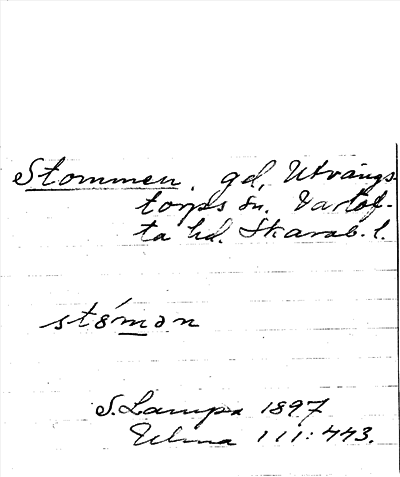 Stommen. gd, Utvängs-
torps sn. Vartof-
ta hd. Skarab. l.
stómən
S. Lampa 1897
Ulma 111:443.